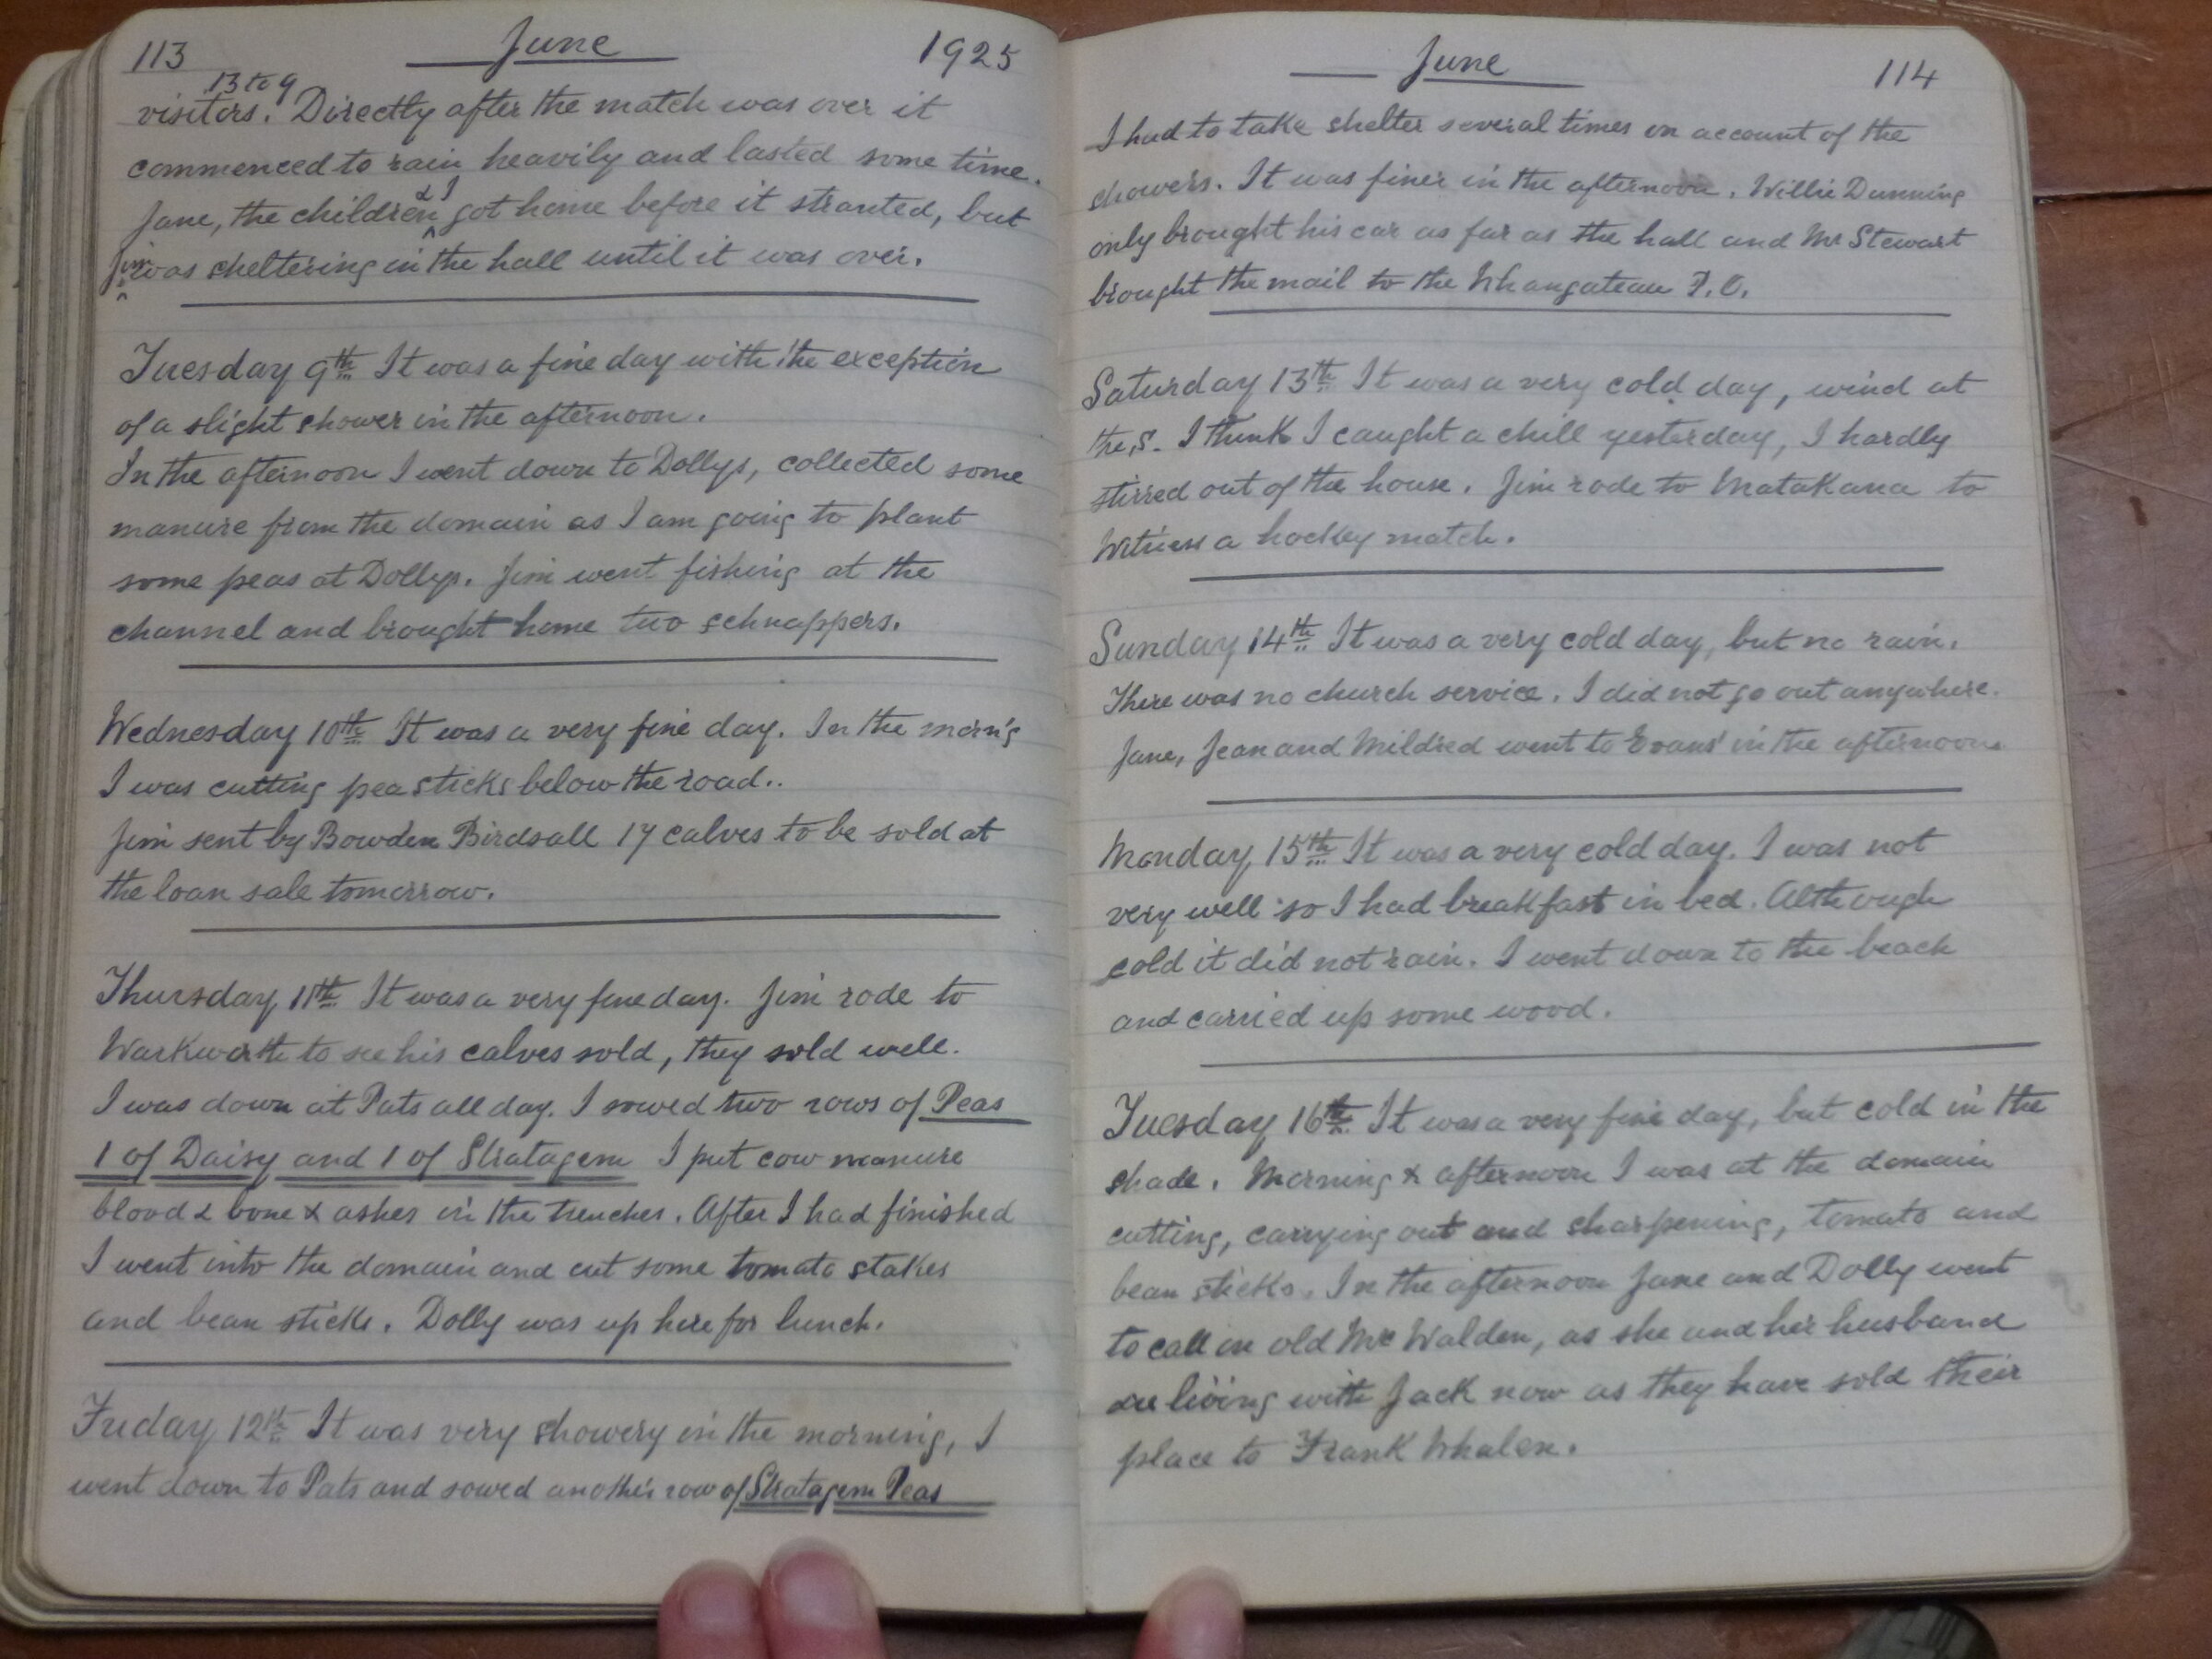 113 June 1925
13 to 9
visitors. Directly after the match was over it
commenced to rain heavily and lasted some time.
& I
Jane, the children ^ got home before it stranted, but
Jim was sheltering in the hall until it was over.
Tuesday 9th It was a fine day with the exception
of a slight shower in the afternoon.
In the afternoon I went down to Dollys, collected some
manure from the domain as I am going to plant
some peas at Dollys. Jim went fishing at the
channel and brought home two schnappers.
Wednesday 10th It was a very fine day. In the morn'g
I was cutting pea sticks below the road..
Jim sent by Bowden Birdsall 17 calves to be sold at
the loan sale tomorrow.
Thursday 11th It was a very fine day. Jim rode to
Warkworth to see his calves sold, they sold well.
I was down at Pats all day. I sowed two rows of Peas
1 of Daisy and 1 of Stratagem I put cow manure
blood & bone & ashes in the trenches. After I had finished
I went into the domain and cut some tomato stakes
and bean sticks. Dolly was up here for lunch.
Friday 12th It was very showery in the morning, I
went down to Pats and sowed another row of Stratagem Peas
June 114
I had to take shelter several times on account of the
showers. It was finer in the afternoon. Willie Dunning
only brought his car as far as the hall and Mr Stewart
brought the mail to the Whangateau P.O.
Saturday 13th It was a very cold day, wind at
the S. I think I caught a chill yesterday, I hardly
stirred out of the house. Jim rode to Matakana to
witness a hockey match.
Sunday 14th It was a very cold day, but no rain.
There was no church service. I did not go out anywhere.
Jane, Jean and Mildred went to Evans' in the afternoon
Monday 15th It was a very cold day. I was not
very well so I had breakfast in bed. Although
cold it did not rain. I went down to the beach
and carried up some wood.
Tuesday 16th It was a very fine day, but cold in the
shade. Morning & afternoon I was at the domain
cutting, carrying out and sharpening, tomato and
bean sticks. In the afternoon Jane and Dolly went
to call on old Mrs Walden, as she and her husband
are living with Jack now as they have sold their
place to Frank Whalen.